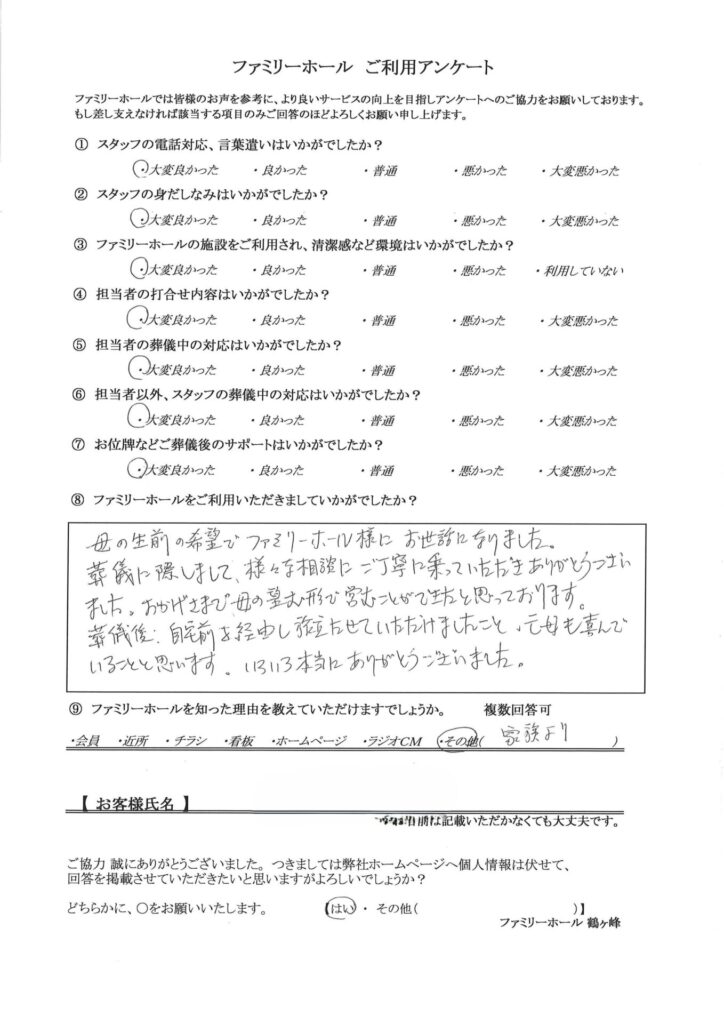 ファミリーホール ご利用アンケート
ファミリーホールでは皆様のお声を参考に、より良いサービスの向上を目指しアンケートへのご協力をお願いしております。
もし差し支えなければ該当する項目のみご回答のほどよろしくお願い申し上げます。
① スタッフの電話対応、言葉遣いはいかがでしたか？
・大変良かった ・良かった ・普通 ・悪かった ・大変悪かった
② スタッフの身だしなみはいかがでしたか？
・大変良かった ・良かった ・普通 ・悪かった ・大変悪かった
③ ファミリーホールの施設をご利用され、清潔感など環境はいかがでしたか？
・大変良かった ・良かった ・普通 ・悪かった ・利用していない
④ 担当者の打合せ内容はいかがでしたか？
・大変良かった ・良かった ・普通 ・悪かった ・大変悪かった
⑤ 担当者の葬儀中の対応はいかがでしたか？
・大変良かった ・良かった ・普通 ・悪かった ・大変悪かった
⑥ 担当者以外、スタッフの葬儀中の対応はいかがでしたか？
・大変良かった ・良かった ・普通 ・悪かった ・大変悪かった
⑦ お位牌などご葬儀後のサポートはいかがでしたか？
・大変良かった ・良かった ・普通 ・悪かった ・大変悪かった
⑧ ファミリーホールをご利用いただきましていかがでしたか？
母の生前の希望でファミリーホール様に お世話になりました。
葬儀に際しまして、様々な相談に ご丁寧に乗っていただきありがとうござい
ました。おかげさまで母の望む形で営むことができたと思っております。
葬儀後、自宅前を経由し旅立たせていただけましたこと、母も喜んで
いることと思います。いろいろ本当にありがとうございました。
⑨ ファミリーホールを知った理由を教えていただけますでしょうか。 複数回答可
・会員 ・近所 ・チラシ ・看板 ・ホームページ ・ラジオCM ・その他( 家族より )
【 お客様氏名 】
は記載いただかなくても大丈夫です。
ご協力 誠にありがとうございました。つきましては弊社ホームページへ個人情報は伏せて、
回答を掲載させていただきたいと思いますがよろしいでしょうか？
どちらかに、○をお願いいたします。 【はい ・ その他( )】
ファミリーホール 鶴ヶ峰